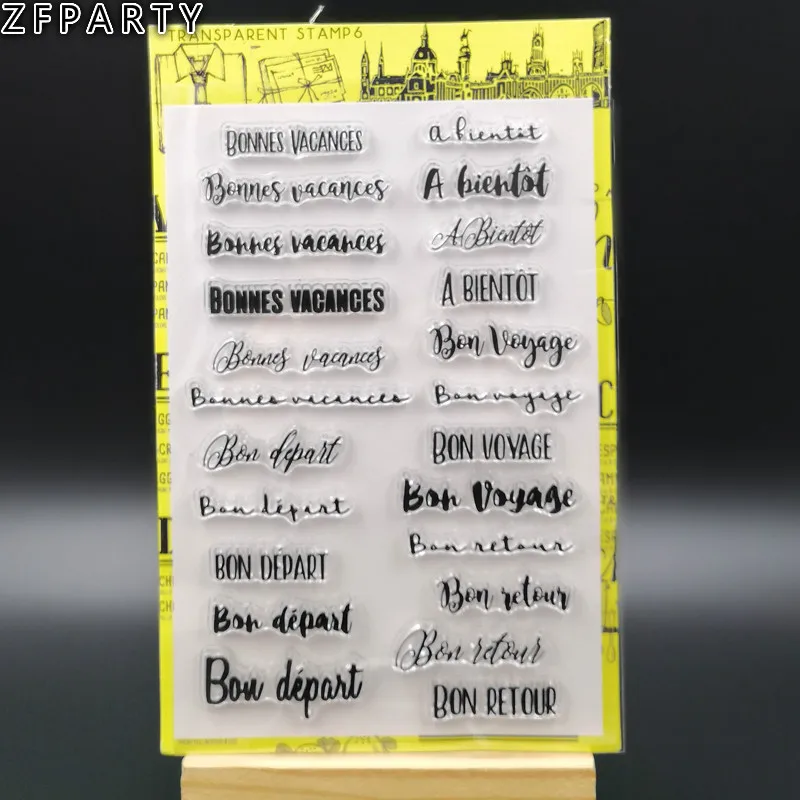 ZFPARTY
TRANSPARENT STAMP6
BONNES VACANCES
Bonnes vacances
Bonnes vacances
BONNES VACANCES
Bonnes vacances
Bonnes vacances
Bon départ
Bon départ
BON DÉPART
Bon départ
Bon départ
A bientôt
A bientôt
A Bientôt
A BIENTÔT
Bon Voyage
Bon voyage
BON VOYAGE
Bon Voyage
Bon retour
Bon retour
Bon retour
BON RETOUR